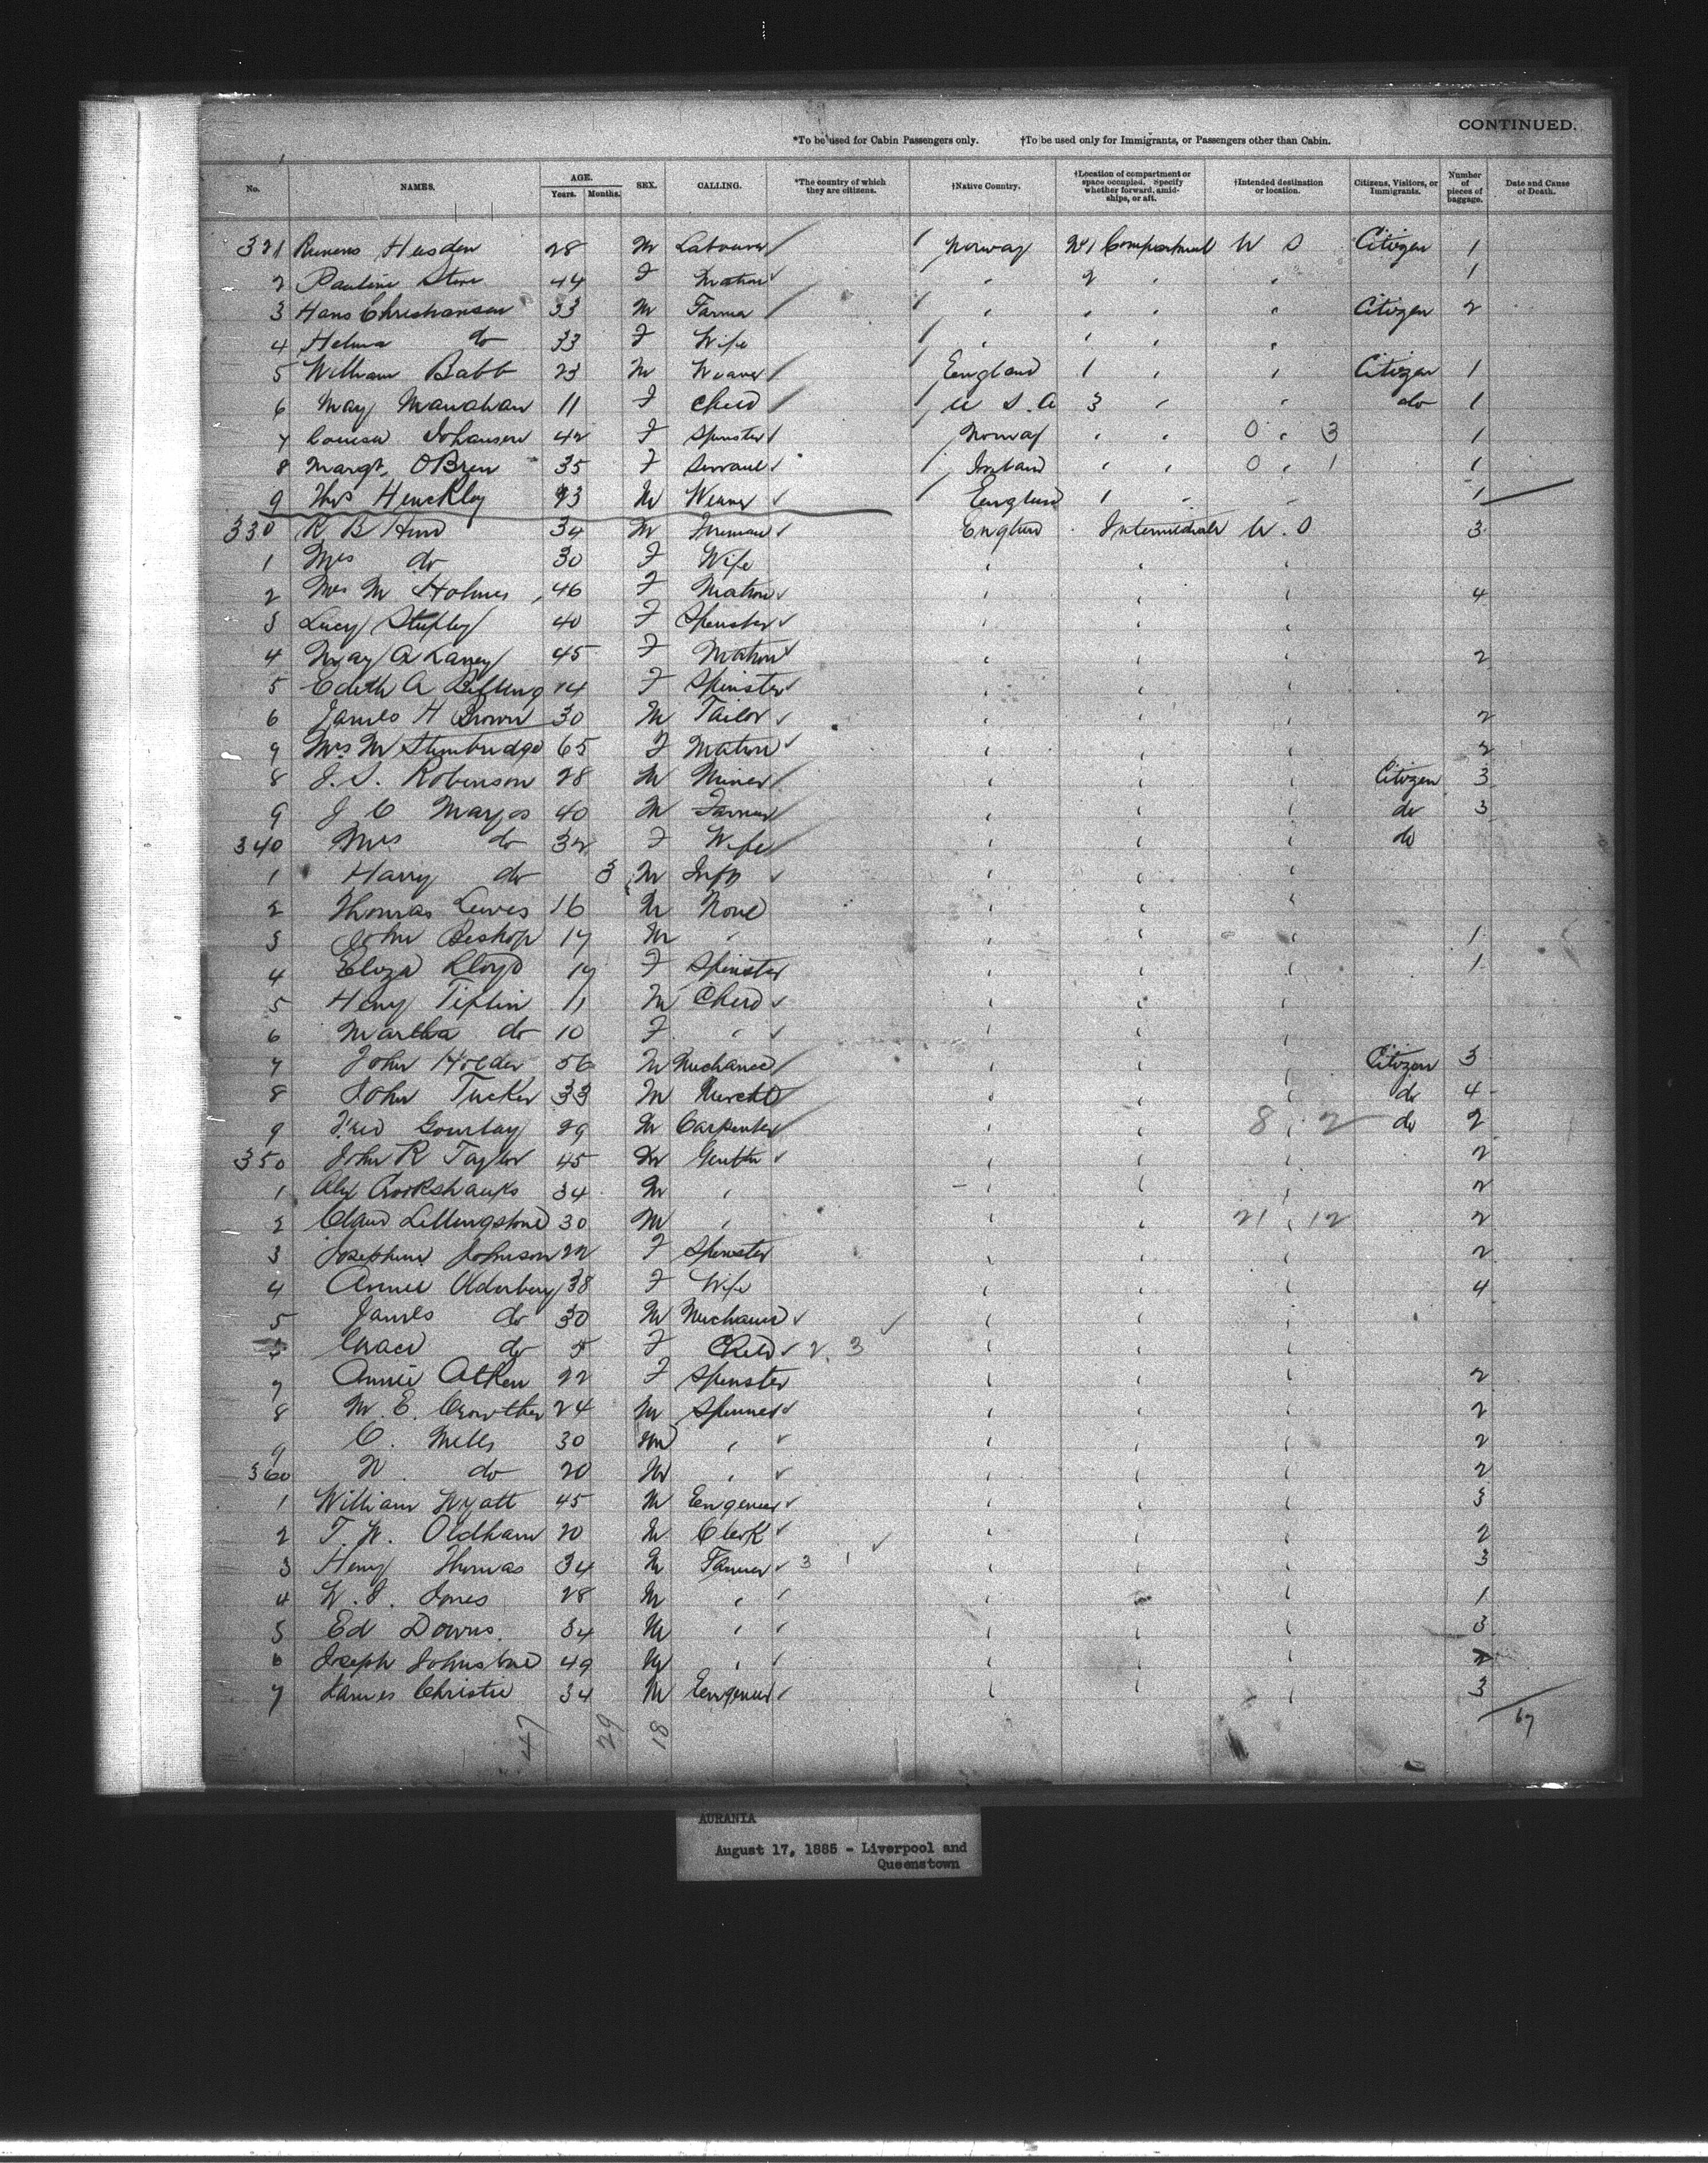 CONTINUED.
*To be used for Cabin Passengers only. †To be used only for Immigrants, or Passengers other than Cabin.
No. NAMES. AGE. Years. Months. SEX. CALLING. *The country of which they are citizens. †Native Country. †Location of compartment or space occupied. Specify whether forward, amidships, or aft. †Intended destination or location. Citizens, Visitors, or Immigrants. Number of pieces of baggage. Date and Cause of Death.
321 28 M Labourer Norway No 1 Compartment U S Citizen 1
2 Pauline 44 F Matron " 2 " " 1
3 Hans Christiansen 33 M Farmer " " " " Citizen 2
4 Helma do 33 F Wife " " " "
5 William Babb 23 M Weaver England 1 " " Citizen 1
6 May Manahan 11 F Child U S A 3 " " do 1
7 Louisa Johansen 42 F Spinster Norway " " 0 " 3 1
8 Margt. OBrien 35 F Servant Ireland " " 0 " 1 1
9 Thos Henckley M Weaver England 1 " " 1
330 R B 34 M England Intermediate U. S 3
1 Mrs do 30 F Wife " " "
2 Mrs M Holmes 46 F Matron " " " 4
3 Lucy 40 F Spinster " " "
4 45 F Matron " " " 2
5 Edith A 14 F Spinster " " "
6 James H Brown 30 M Tailor " " " 2
7 Mrs M Stembridge 65 F Matron " " " 2
8 J. S. Robinson 28 M Miner " " " Citizen 3
9 J C 40 M Farmer " " " do 3
340 Mrs do 32 F Wife " " " do
1 Harry do 3 M Inft " " "
2 Thomas Lewis 16 M None " " "
3 John Bishop 17 M " " " " 1
4 Eliza Lloyd 17 F Spinster " " " 1
5 Henry Tiplin 11 M Child " " "
6 Martha do 10 F " " " "
7 John Holder 56 M Mechanic " " " Citizen 3
8 John Tucker 33 M Mercht " " " do 4
9 Fred Gourlay 29 M Carpenter " " 8 " 2 do 2
350 John R Taylor 45 M Gentln " " " 2
1 Alex Crookshanks 34 M " " " " 2
2 Claud Lillingstone 30 M " " " 21 " 12 2
3 Josephine Johnson 22 F Spinster " " " 2
4 Annie Olderbury 38 F Wife " " " 4
5 James do 30 M Mechanic " " "
6 Grace do 5 F Child 2, 3 " " "
7 Annie Aitken 22 F Spinster " " " 2
8 M. E. Crowther 24 M Spinner " " " 2
9 C. Mills 30 M " " " " 2
360 N. do 20 M " " " " 2
1 William Wyatt 45 M Engeneer " " " 3
2 T. W. Oldham 20 M Clerk " " " 2
3 Henry Thomas 34 M Farmer 3 1 " " " 3
4 W. J. Jones 28 M " " " " 1
5 Ed Downs. 34 M " " " " 3
6 Joseph Johnstone 49 M " " " " 2
7 James Christie 34 M Engeneer " " " 3
67
47 29 18
AURANIA
August 17, 1885 - Liverpool and
Queenstown